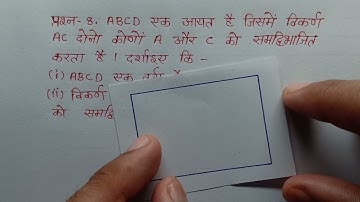 प्रश्न-3. ABCD एक आयत है जिसमें विकर्ण
AC दोनो कोणों A और C को समद्विभाजित
करता है। दर्शाइए कि -
(i) ABCD एक
(ii) विकर्ण
को